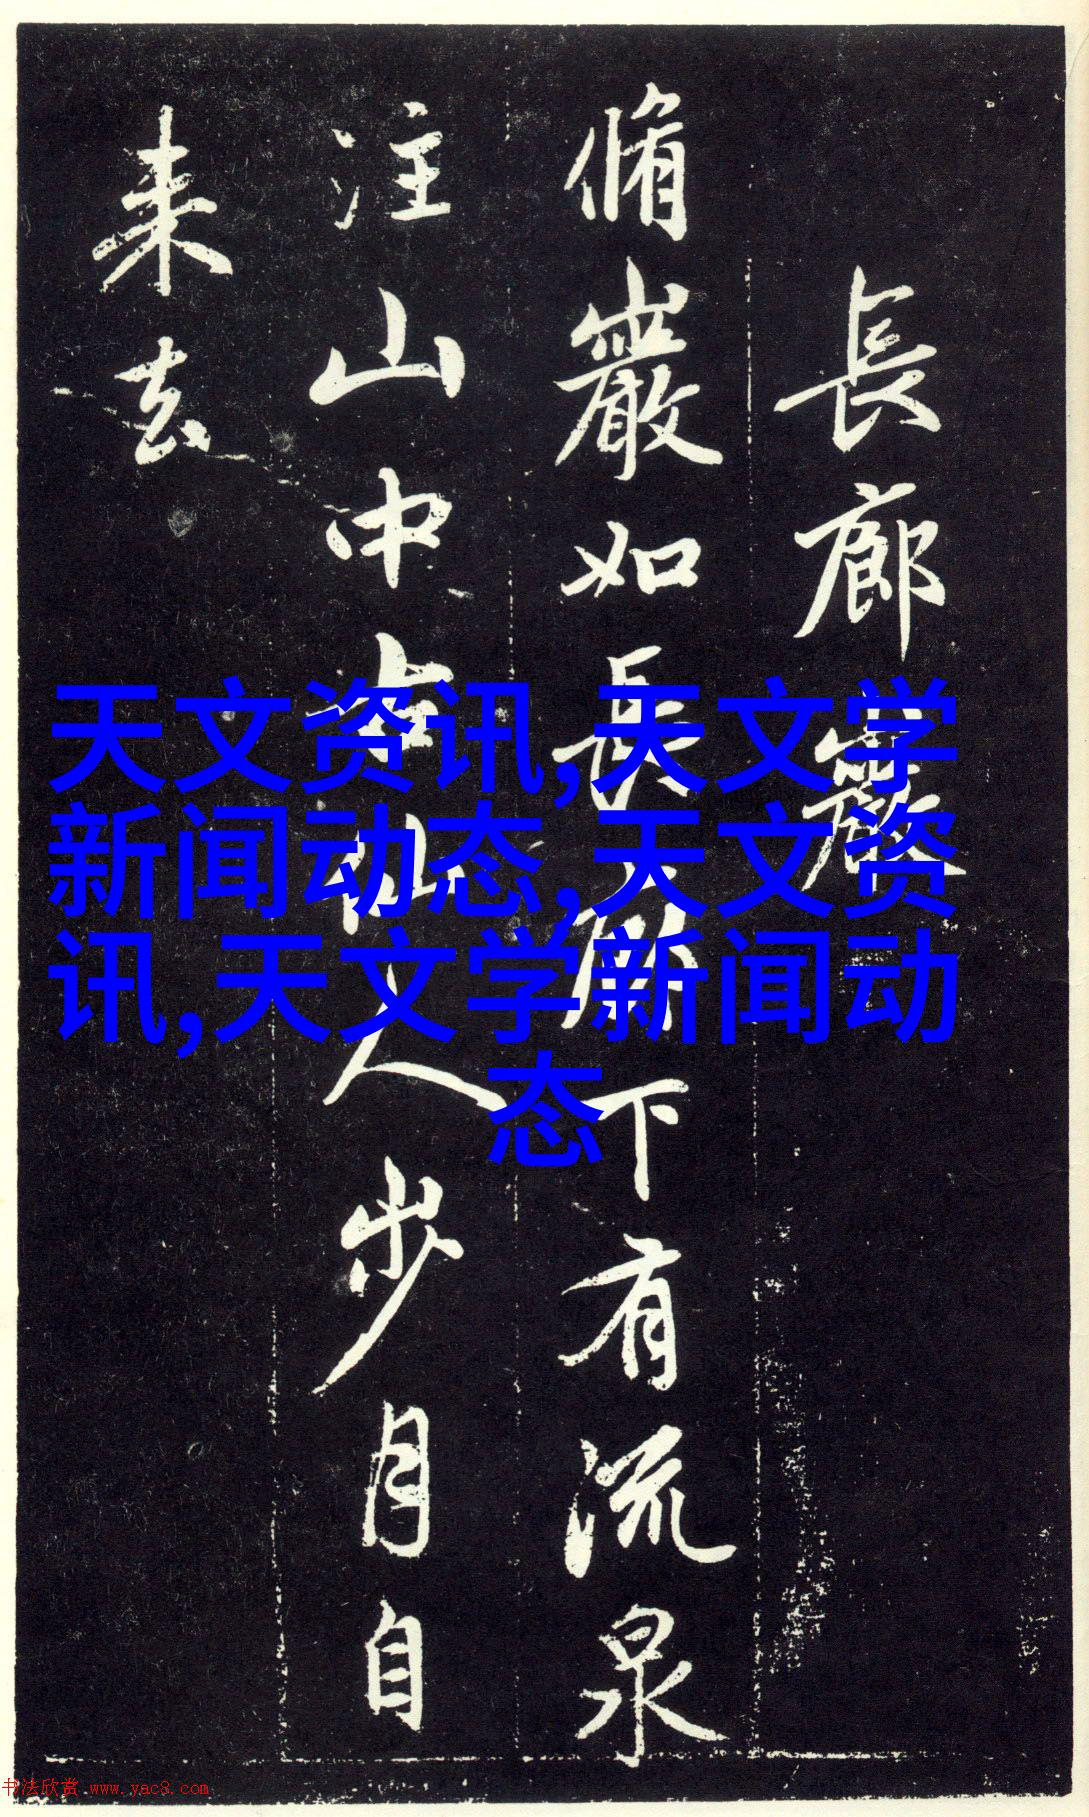 長廊巖
脩巖如長廊下有流泉
注山中古仙人步月自
来去
天文资讯,天文学
新闻动态,天文资
讯,天文学新闻动
态
书法欣赏 www.yac8.com